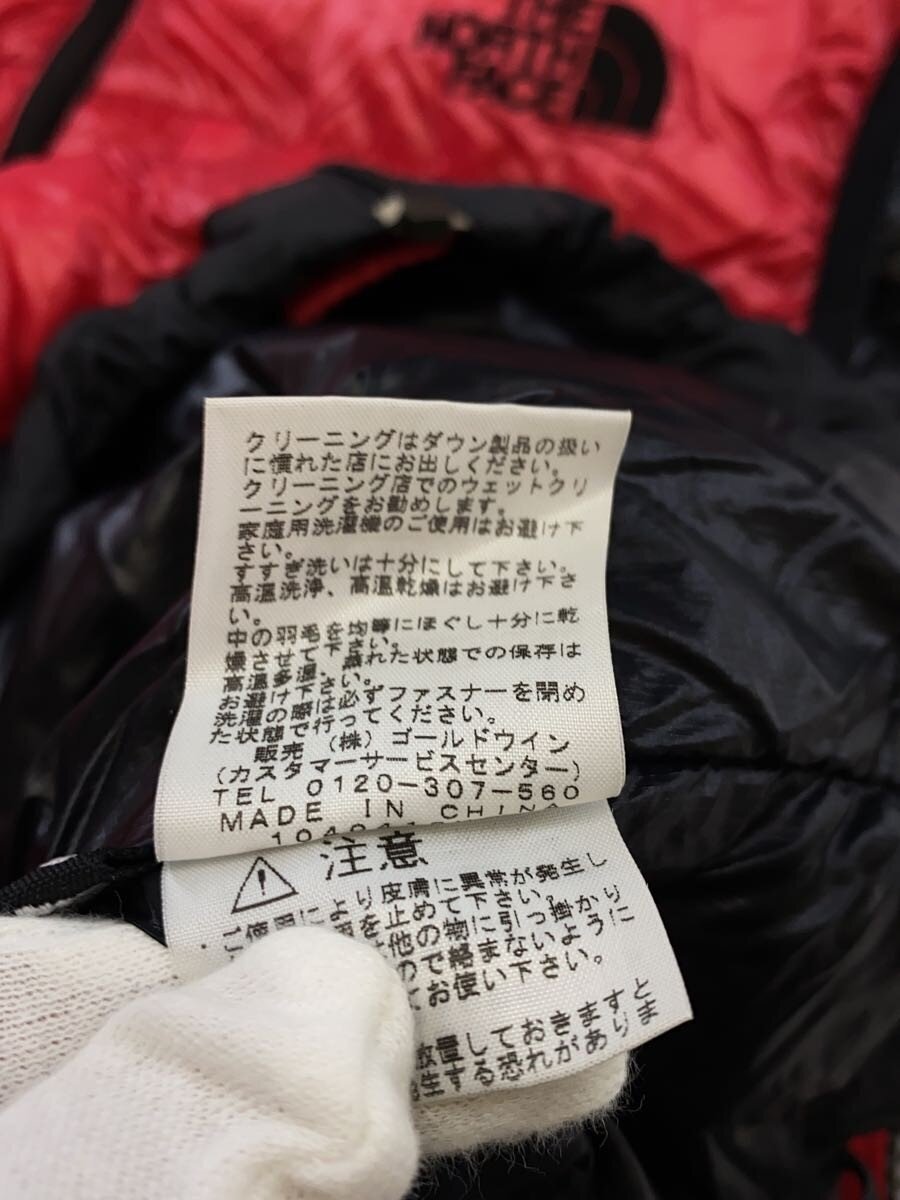 THE
NORTH
FACE
クリーニングはダウン製品の扱い
に慣れた店にお出しください。
クリーニング店でのウェットクリ
ーニングをお勧めします。
家庭用洗濯機のご使用はお避け下
さい。
すすぎ洗いは十分にして下さい。
高温洗浄、高温乾燥はお避け下さ
い。
中の羽毛を均等にほぐし十分に乾
燥させて下さい。
高温多湿、蒸れた状態での保存は
お避け下さい。
洗濯の際は必ずファスナーを閉め
た状態で行ってください。
販売 (株) ゴールドウイン
(カスタマーサービスセンター)
TEL 0120-307-560
MADE IN CHINA
注意
・ご使用により皮膚に異常が発生し
を止めて下さい。
他の物に引っ掛かり
ので絡まないように
てお使い下さい。
放置しておきますと
発生する恐れがありま